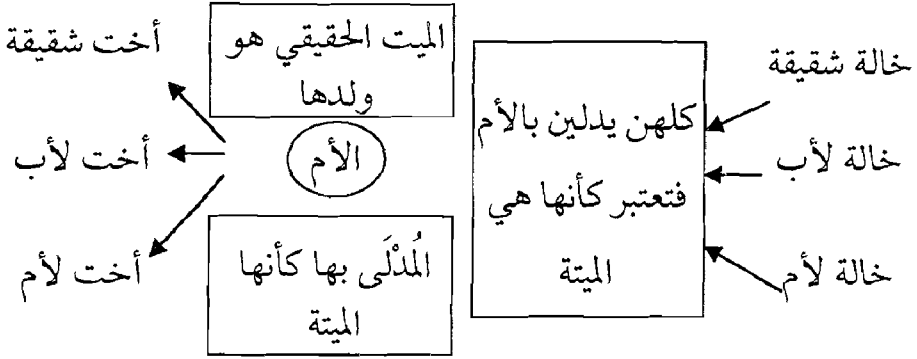 خالة شقيقة
خالة لأب
خالة لأم
كلهن يدلين بالأم
فتعتبر كأنها هي
الميتة
الميت الحقيقي هو
ولدها
الأم
المُدْلَى بها كأنها
الميتة
أخت شقيقة
أخت لأب
أخت لأم